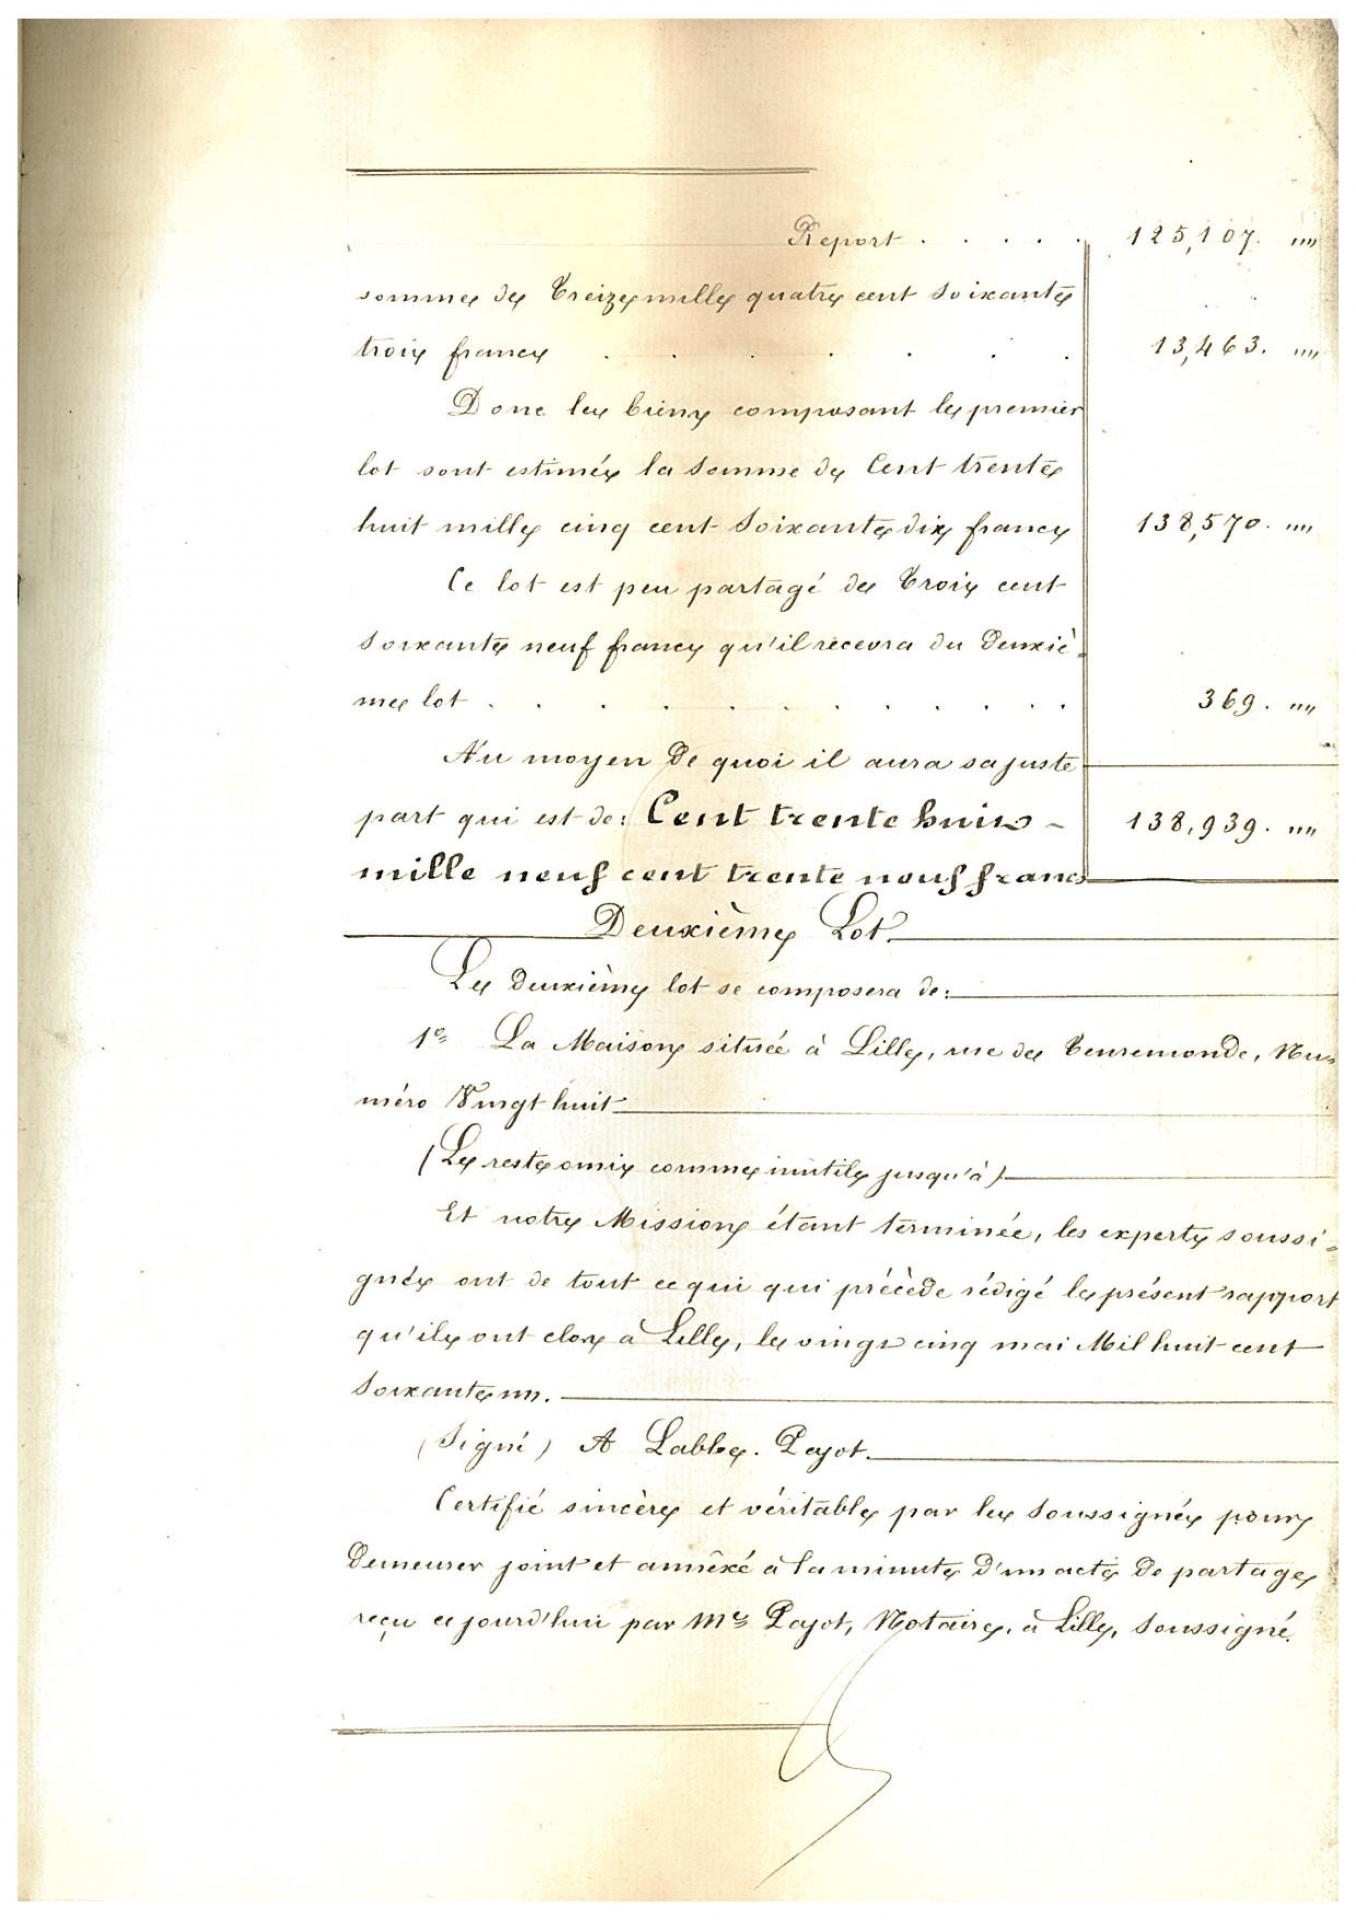 Report . . . . . 125,107. ""
somme de Treize mille quatre cent soixante
trois francs . . . . . . 13,463. ""
Donc les biens composant le premier
lot sont estimés la somme de Cent trente
huit mille cinq cent soixante dix francs 138,570. ""
Ce lot est peu partagé de Trois cent
soixante neuf francs qu'il recevra du Deuxiè-
me lot . . . . . . . . . . . 369. ""
Au moyen de quoi il aura sa juste
part qui est de: Cent trente huit - 138,939. ""
mille neuf cent trente neuf francs
Deuxième Lot
Le deuxième lot se composera de:
1º La Maison située à Lille, rue de Tenremonde, Nu-
méro Vingt huit
(Le reste omis comme inutile jusqu'à)
Et notre Mission étant terminée, les experts soussi-
gnés ont de tout ce qui qui précède rédigé le présent rapport
qu'ils ont clos à Lille, le vingt cinq mai Mil huit cent
soixante un.
(Signé) A Labbe. Pajot.
Certifié sincère et véritable par les soussignés pour
demeurer joint et annexé à la minute d'un acte de partage
reçu ce jourd'hui par Me Pajot, Notaire, à Lille, soussigné.